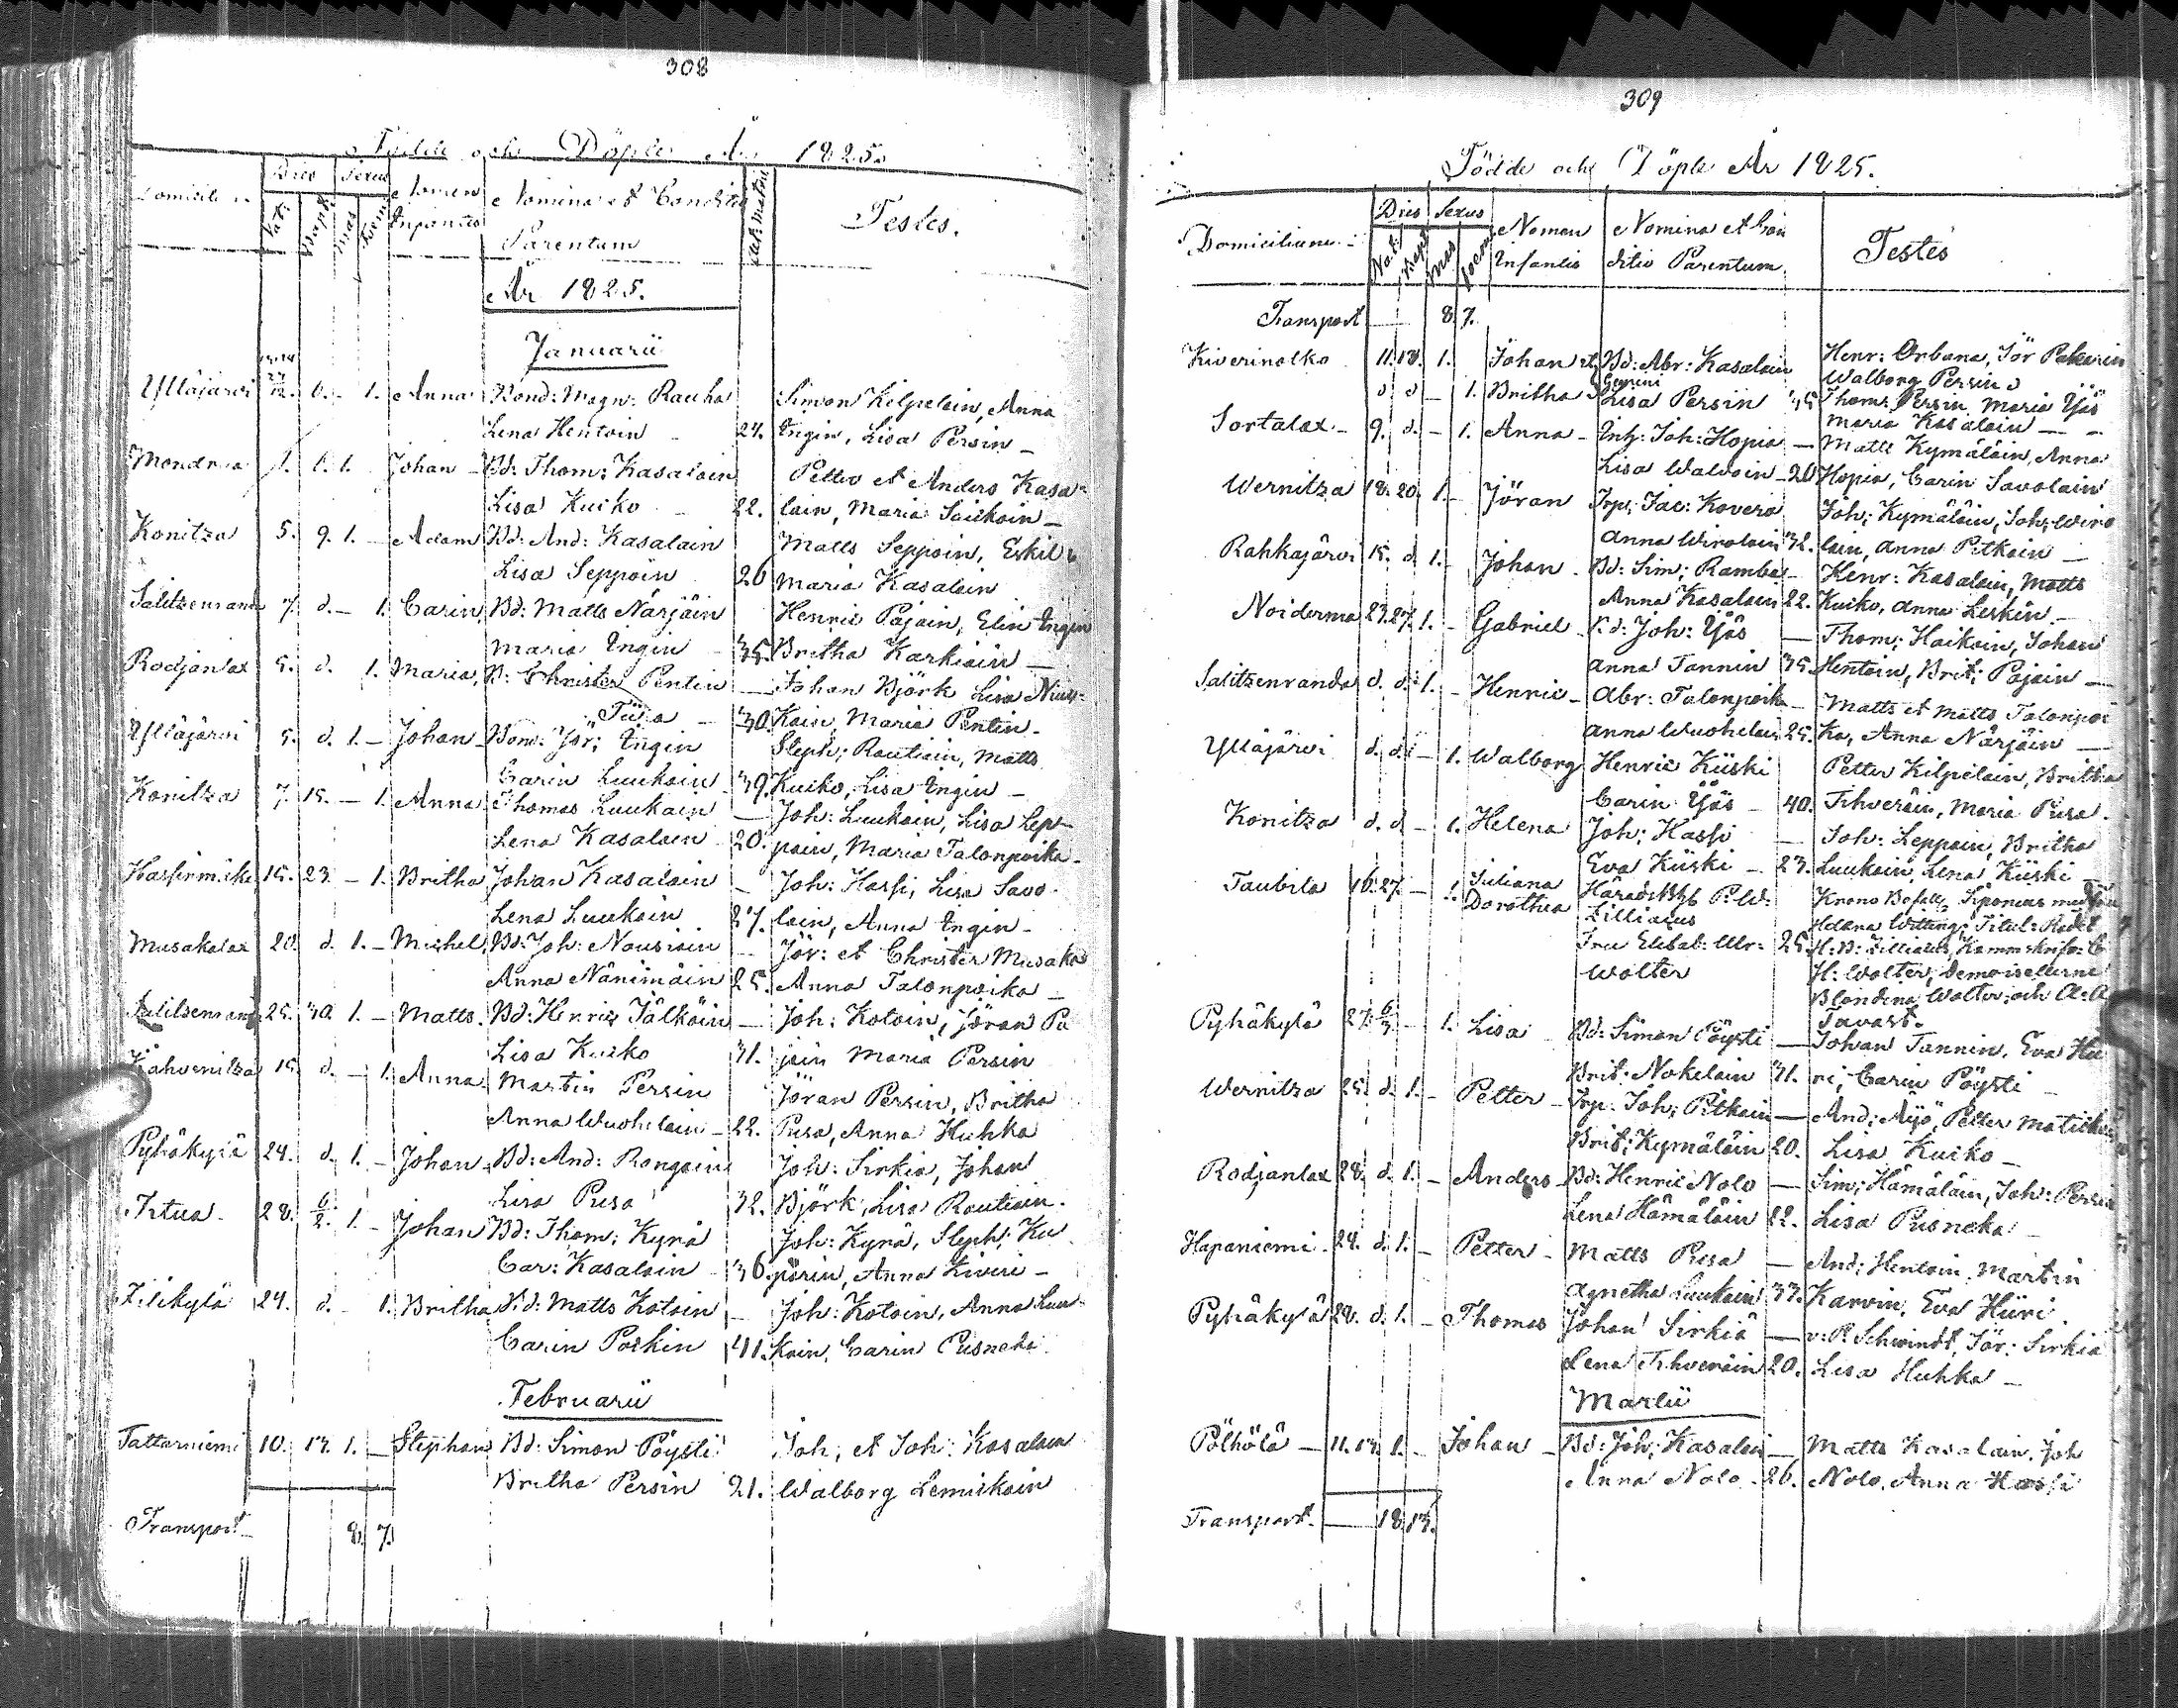 308
Födde och Döpte År 1825.
Domicilium Dies Sexus Nomen Infantis Nomina et Conditio Parentum Testes.
Nat: Bapt: Mas Foem
År 1825.
Januarii
Ylläjärvi 6. – 1. Anna Bond: Magn: Rauha Simon Kilpelain, Anna
Lena Hentoin 24. Ingin, Lisa Persin –
Mondrea 1. 6. 1. Johan – Bd: Thom: Kasalain Petter et Anders Kasa-
Lisa Kuiko – 22. lain, Maria Laukain –
Konitza 5. 9. 1. – Adam Bd: And: Kasalain Matts Seppoin, Eskil
Lisa Seppoin 26 Maria Kasalain
Salitzenranda 7. d. – 1. Carin Bd: Matts Närjäin Henric Pajain, Elin Ingin
Maria Ingin – 35. Britha Karkiain –
Rodjanlax 5. d. 1. Maria, B: Christer Pentin – Johan Björk Lisa
30. Maria Pentin.
Ylläjärvi 5. d. 1. – Johan – Bond: Jör: Ingin Steph: Rautiain, Matts
Carin Luukain 39. Kuiko, Lisa Ingin –
Konitza 7. 15. – 1. Anna Thomas Luukain – Joh: Luukain, Lisa Lep-
Lena Kasalain 20. pain, Maria Talonpoika –
15. 23. – 1. Britha Johan Kasalain – Joh: Hassi, Lisa Savo-
Lena Luukain 27. lain, Anna Ingin –
Musakalax 20. d. 1. – Michel, Bd: Joh: Nousiain – Jör: et Christer Musaka
Anna Nänimäin 25. Anna Talonpoika –
25. 30. 1. – Matts. Bd: Henric Jälkäin – Joh: Kotoin, Jöran Pa
Lisa Kuiko 31. jain Maria Persin
Kahvenitza 15. d. – 1. Anna. Martin Persin Jöran Persin, Britha
Anna Wuohelain – 22. Pusa, Anna Huhka
Pyhäkylä 24. d. 1. – Johan Bd: And: Rongain Joh: Sirkiä, Johan
Lisa Pusa 32. Björk, Lisa Rautiain.
Istua – 28. 6/2. 1. – Johan Bd: Thom: Kyrä Joh: Kyrä, Steph: Ku
Car: Kasalain – 36. pärin, Anna Kiveri –
24. d. – 1. Britha Bd: Matts Kotoin – Joh: Kotoin, Anna Luu-
Carin Poikin 41. Kain, Carin Pusneka
Februarii
Tattarniemi 10. 13. 1. – Stephan Bd: Simon Pöysti Joh: et Joh: Kasalain
Britha Persin 21. Walborg Lemikain
Transport – 8. 7.
309
Födde och Döpte År 1825.
Domicilium Dies Sexus Nomen Infantis Nomina et Conditio Parentum. Testes
Nat: Bapt: Mas Foem
Transport – 8. 7.
Kiverinotko 11. 13. 1. Johan et Bd: Abr: Kasalain Henr: Orbana, Jör Pakarin
Walborg Persin
d d – 1. Britha Gemini Lisa Persin 35 Thom: Persin Maria Yös
Maria Kasalain –
Sortalax – 9. d. – 1. Anna – Inh: Joh: Hopia – Matts Kymäläin, Anna
Lisa Walvoin – 20 Hopia, Carin Savolain
Wernitza 18. 20. 1. – Jöran Trp: Jac: Kovera Joh: Kymäläin, Joh: Wiro
Anna Wirolain 32. lain, Anna Pitkain –
Rahkajärvi 15. d 1. – Johan – Bd: Sim: Ramba – Henr: Kasalain, Matts
Anna Kasalain 22. Kuiko, Anna Leskin. –
Noiderma 23. 27. 1. – Gabriel – Bd: Joh: Yös – Thom: Haikain, Johan
Anna Tannin 35. Hentoin, Brit: Pajain –
Salitzenranda d. d. 1. – Henric – Abr: Talonpoika – Matts et Matts Talonpoi
Anna Wuohelain 25. Ka, Anna Närjäin –
Ylläjärvi d. d. – 1. Walborg Henric Kiiski Petter Kilpelain, Britha
Carin Yös – 40. Ihveräin, Maria Pusa.
Konitza d. d – 1. Helena Joh: Hassi – Joh: Leppain, Britha
Eva Kiiski – 23. Luukain, Lena Kiiski –
Taubila 16. 27. – 1. Juliana Dorothea P: W: Lilliacus Krono Befallg: Siponius med
Helena Witting,
Fru Elisab: Ulr: Wolter 25. H: D: Lilliacus,
H: Wolter, Demoisellerne
Blondina Wolter och
Tavast.
Pyhäkylä 27. 6/3. – 1. Lisa Bd: Simon Pöysti – Johan Tannin, Eva Hii
Brit: Nokelain 31. ri, Carin Pöysti –
Wernitza 25. d. 1. – Petter – Trp: Joh: Pitkain – And: Äijö, Petter
Brit: Kymäläin 20. Lisa Kuiko –
Rodjanlax 28. d. 1. – Anders – Bd: Henric Nolo – Sim: Hämäläin, Joh: Persin
Lena Hämäläin 22. Lisa Pusneka –
Hapaniemi – 24. d. 1. – Petter – Matts Pusa – And: Hentoin, Martin
Agnetha Luukain 33. Karvin, Eva Hiiri
Pyhäkylä 28. d. 1. – Thomas Johan Sirkiä – v: P. Schwindt, Jör: Sirkiä
Lena Ihveräin 20. Lisa Huhka –
Martii
Pölhölä – 11. 13. 1. – Johan – Bd: Joh: Kasalain – Matts Kasalain, Joh
Anna Nolo – 26. Nolo, Anna Hassi
Transport. – 18. 13.